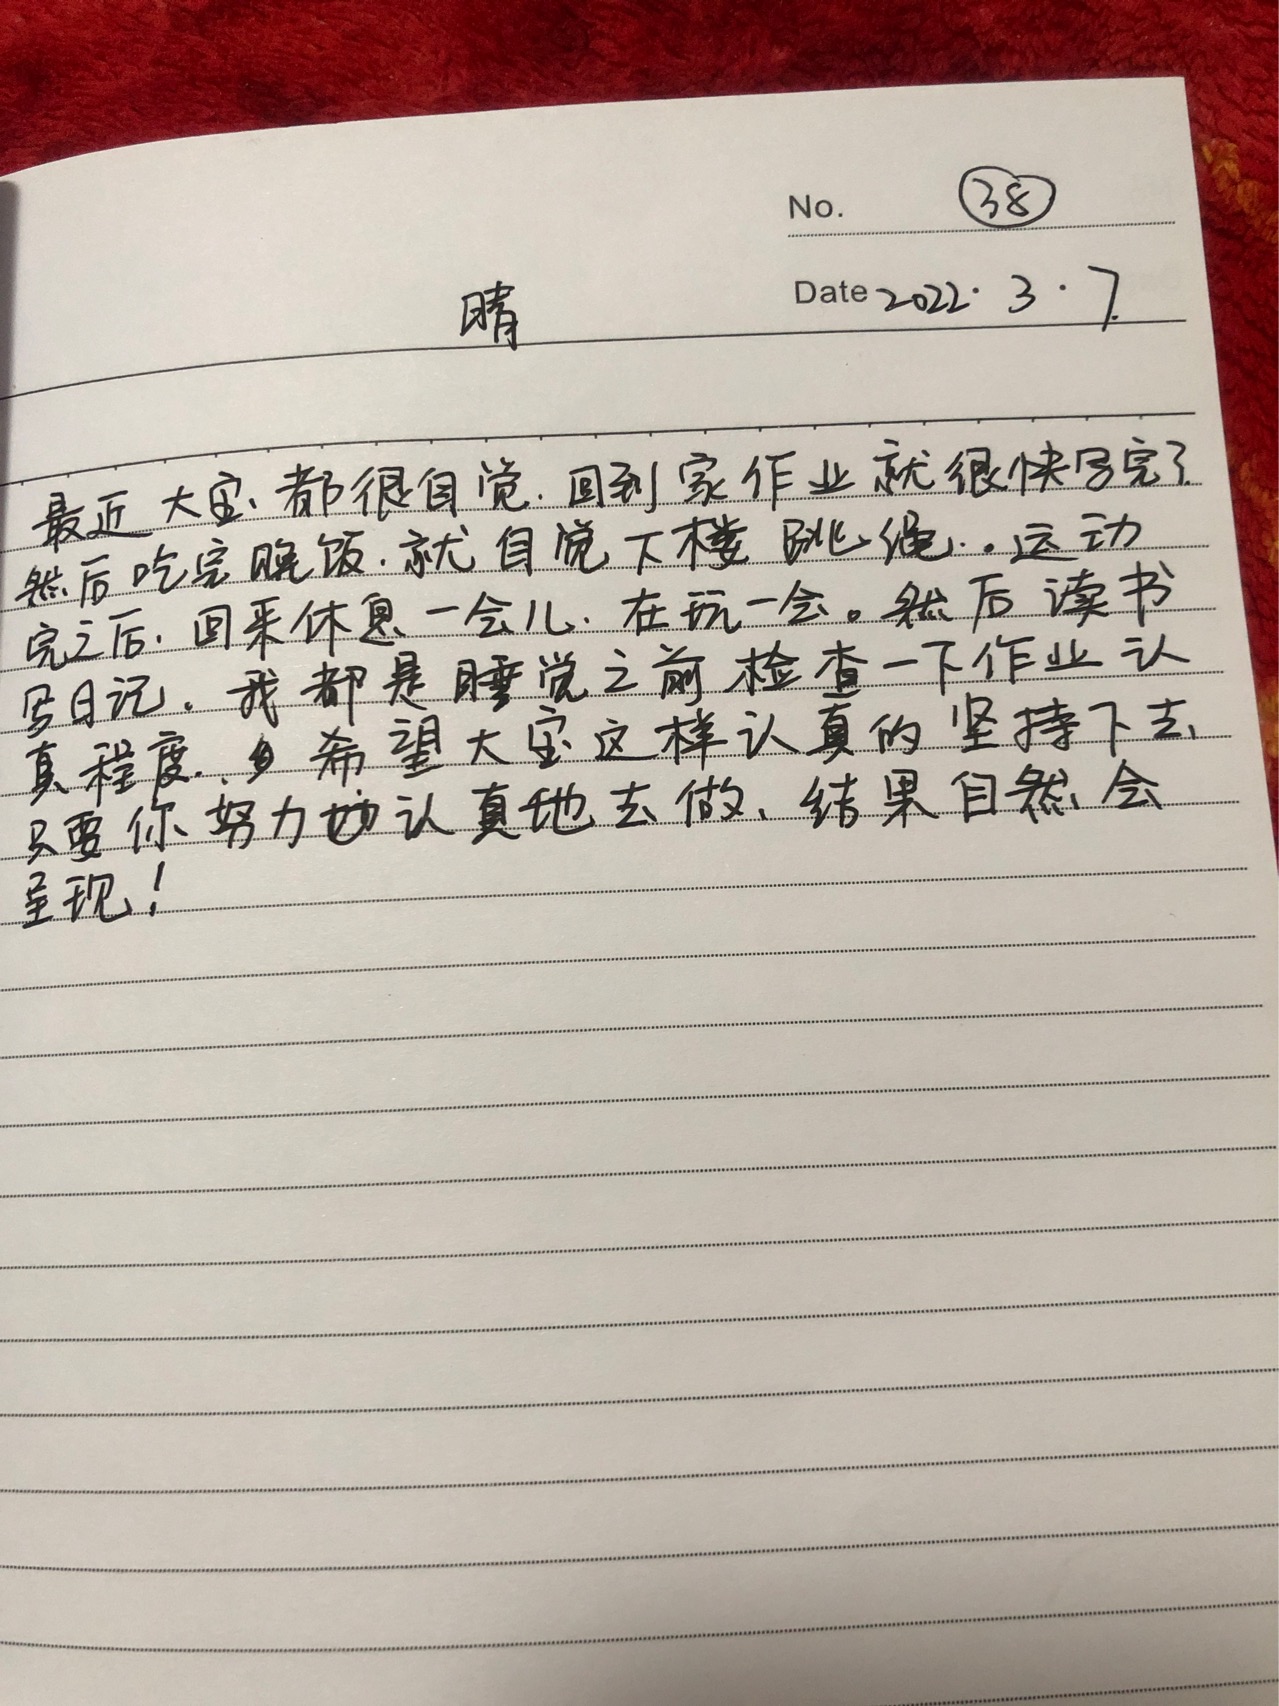 No. 38
Date 2022.3.7.
晴
最近大宝都很自觉.回到家作业就很快写完了
然后吃完晚饭.就自觉下楼跳绳..运动
完之后.回来休息一会儿.在玩一会。然后读书
写日记.我都是睡觉之前检查一下作业认
真程度..希望大宝这样认真的坚持下去、
只要你努力认真地去做、结果自然会
呈现!